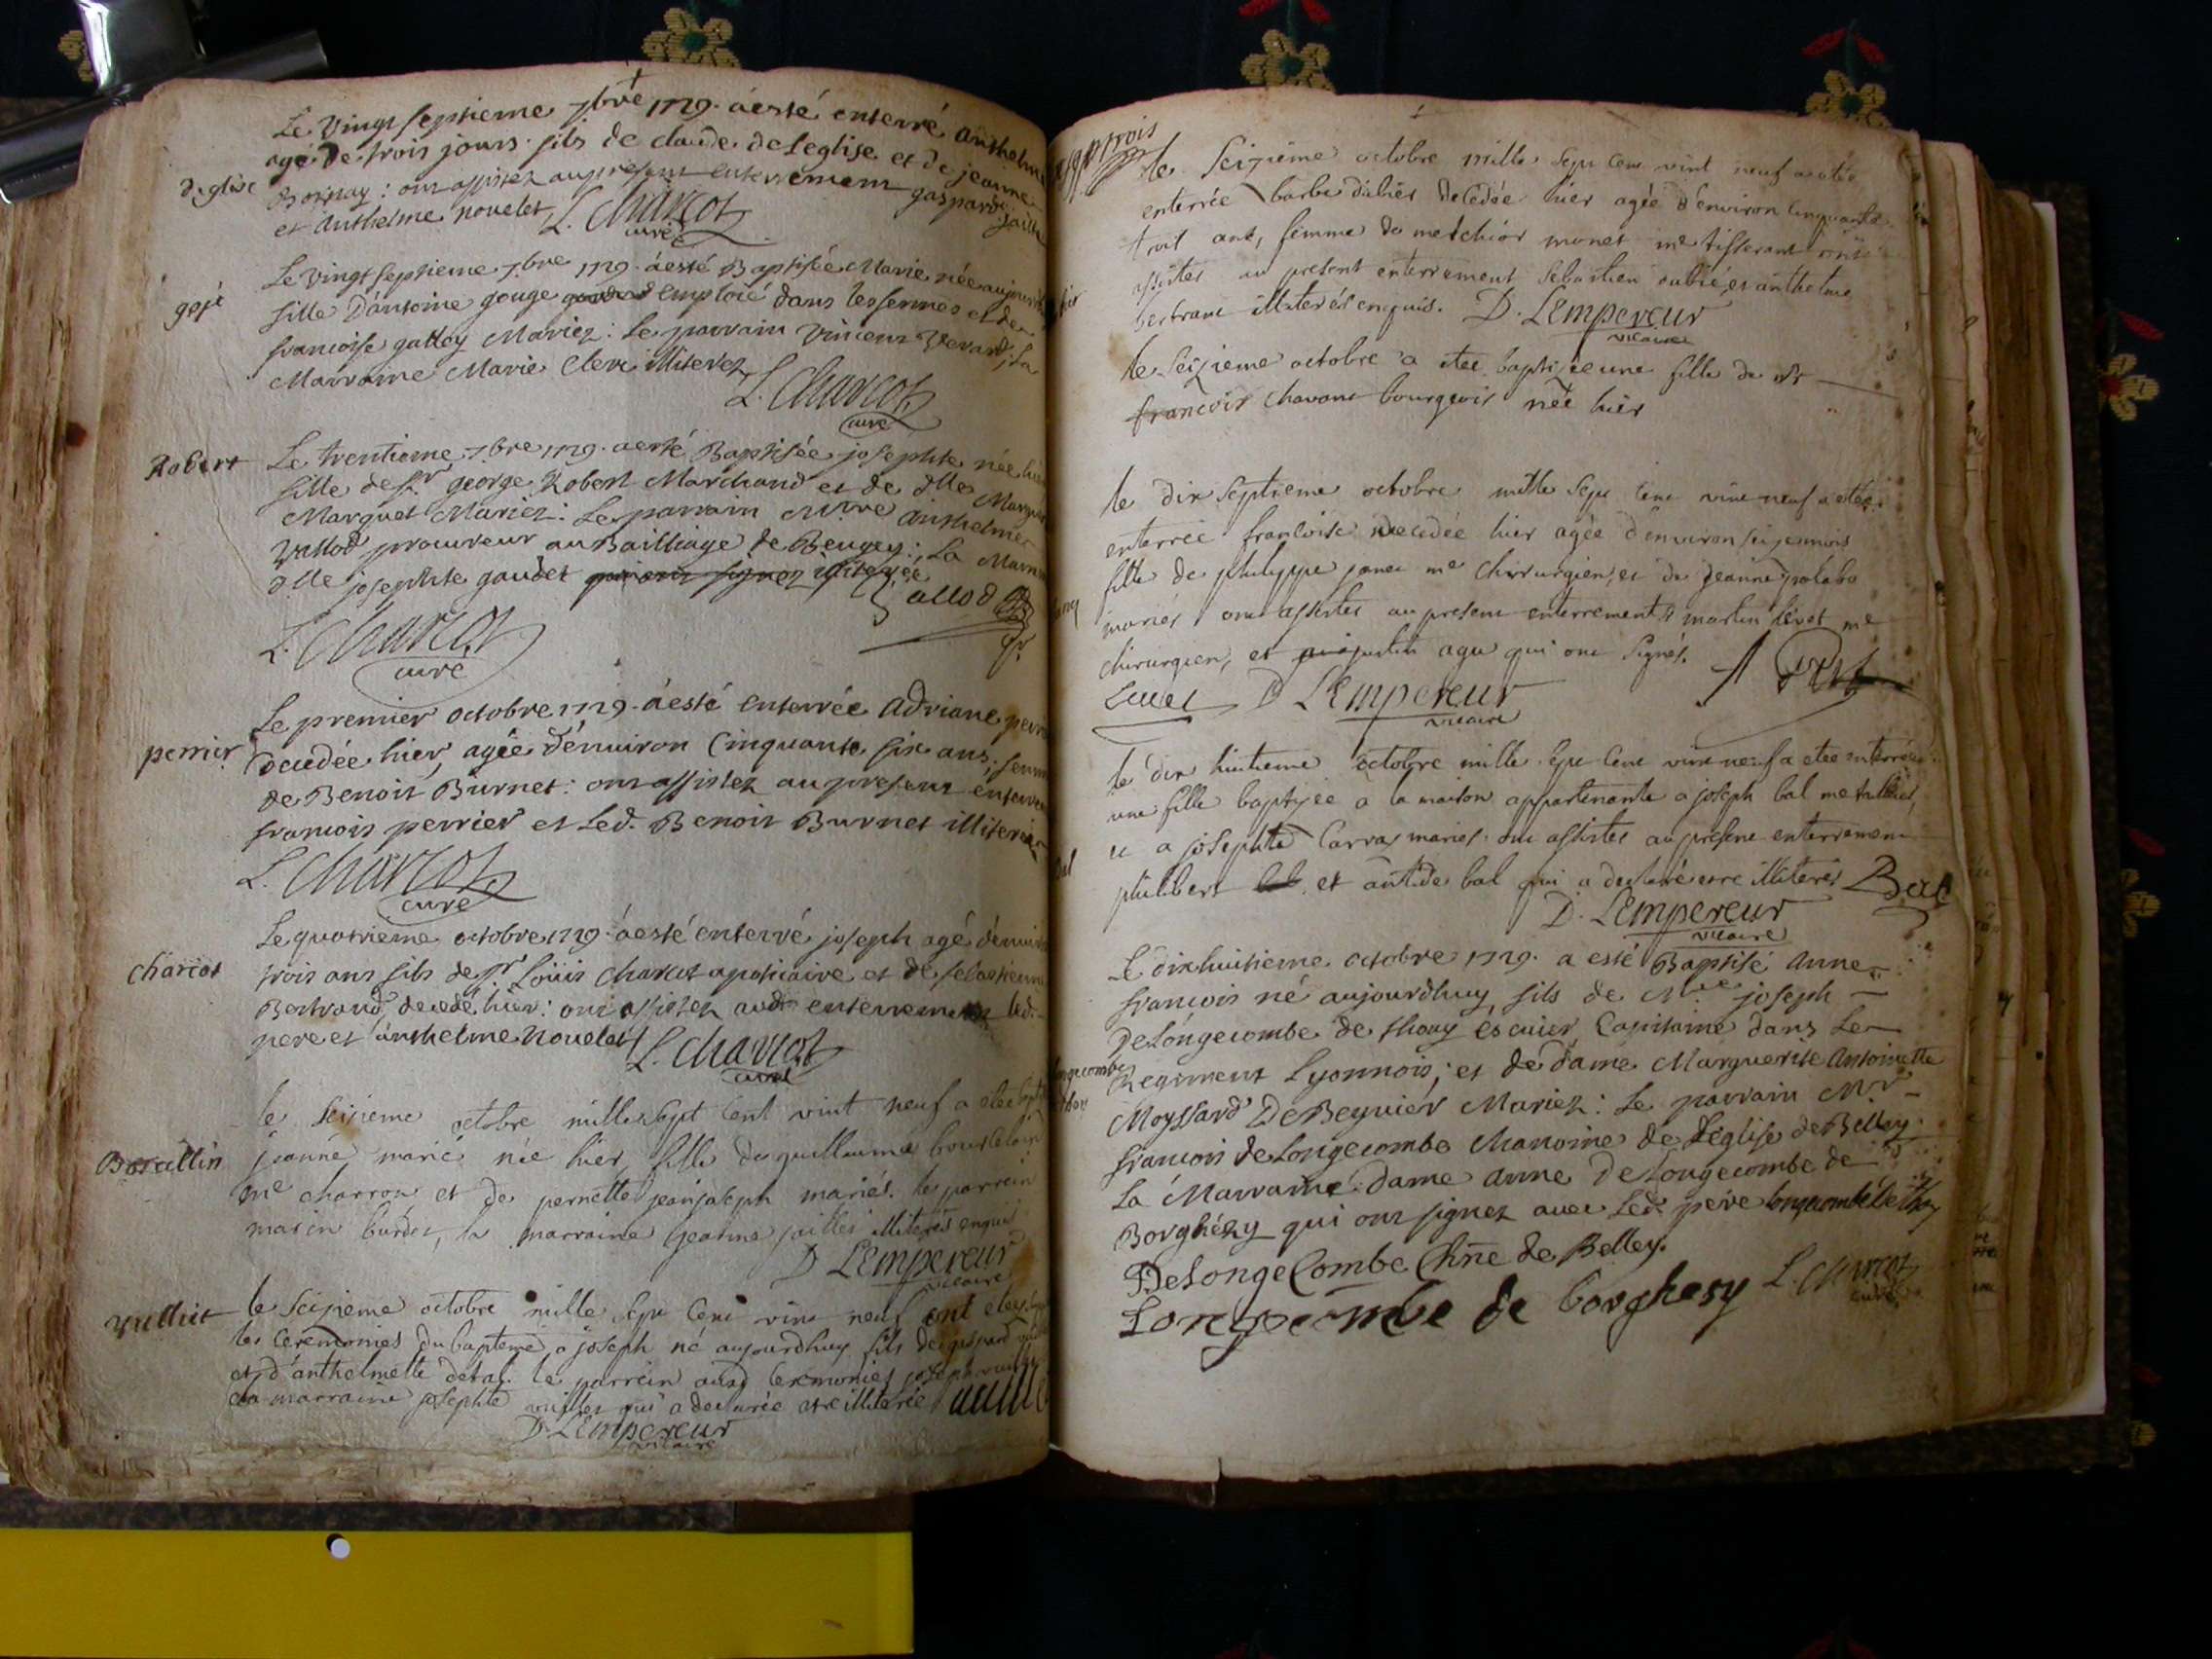 Le vingt septieme 7bre 1729. a esté enterré anthelme
agé de trois jours fils de claude de Leglise et de jeanne
deglise
Bornay : ont assistez au present enterrement gaspard
et anthelme nouelet L. Charcot
curé
Le vingt septieme 7bre 1729. a esté Baptisée Marie née aujourd
goje
fille D'antoine gouge emploié dans les fermes et de
francoise gallay Mariez : Le parrain vincent Verard, La
Marraine Marie Clerc illiterez
L. Charcot
curé
Robert
Le trentieme 7bre 1729. a esté Baptisée josephte née hier
fille de sr george Robert Marchand et de dlle
Marguet Mariez : Le parrain Mtre anthelme
vallod procureur au Bailliage de Beugey ; La Marr
dlle josephte gaudet qui ont signez illiterée
vallod
L. Charcot
curé
Le premier octobre 1729. a esté enterrée Adriane perri
perrier
decedée hier, agée d'enuiron Cinquante six ans, femme
de Benoit Burnet : ont assistez au present enterre
francois perrier et Led. Benoit Burnet illiterez
L. Charcot
curé
Le quatrieme octobre 1729. a esté enterré joseph agé d'enuiron
charcot
trois ans fils de sr Loüis charcot apoticaire et de
Bertrand, decedé hier : ont assistez aud. enterrement led.
pere et anthelme nouelet L. Charcot
curé
le seizieme octobre mille sept cent vint neuf a etee
jeanne marie née hier fille de guillaume
me charron et de pernette jean joseph mariés. le parrein
marin burdet, la marraine jeanne illiterés enquis
D. Lempereur
vicaire
le seizieme octobre mille sept cent vint neuf ont etes
les ceremonies du bapteme a joseph né aujourdhuy fils de gaspard
et d'anthelmette le parrein aux ceremonies joseph
la marraine josephte qui a declarée etre illiterée
D. Lempereur
vicaire
trois
le seizieme octobre mille sept cent vint neuf a etée
enterrée barbe decedée hier agée d'environ cinquante
trois ans, femme de melchior monet me tisserant ont
assistes au present enterrement sebastien et anthelme
bertrand illiterés enquis. D. Lempereur
vicaire
le seizieme octobre a etee baptisée une fille de sr
francois chavant bourgeois née hier
le dix septieme octobre mille sept cent vint neuf a etée
enterrée francoise decedée hier agée d'environ six mois
fille de philippe me chirurgien, et de jeanne
mariés ont assistes au present enterrement martin levet me
chirurgien, et qui ont signés.
Levet D. Lempereur
vicaire
le dix huitieme octobre mille sept cent vint neuf a etee enterrée
une fille baptisée a la maison appartenante a joseph bal me
et a josephte Carraz mariés. ont assistes au present enterrement
philibert et antide bal qui a declaré etre illiterés Bal
D. Lempereur
vicaire
Le dixhuitieme octobre 1729. a esté Baptisé anne
francois né aujourdhuy, fils de Mre joseph
DeLongecombe de thouy escuier, Capitaine dans Le
Regiment Lyonnois ; et de dame Marguerite Antoinette
Moyssard DeBeguiér Mariez : Le parrain Mr
francois deLongecombe chanoine de L'église de Belley.
La Marraine dame anne DeLongecombe de
Borghézy qui ont signez avec Led. pere longecombe de thoy
DeLongeCombe Chne de Belley.
Longecombe de borghesy L. Charcot
curé